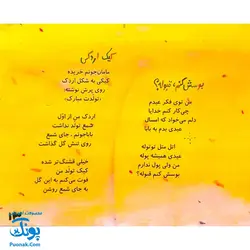 کیک اردکی
مامان‌جونم خریده
کیکی به شکل اردک
روی پرش نوشته:
«تولدت مبارک»
اردک من از اوّل
شمع تولد نداشت
باباجونم، جای شمع
روی تنش گل گذاشت
خیلی قشنگ‌تر شده
کیک تولد من
فوت می‌کنم به این گل
به جای شمع روشن
بوسش کنم، قبوله؟
مل توی فکر عیدم
چی‌کار کنم خدایا
دلم می‌خواد که امسال
عیدی بدم به بابا
اتل متل توتوله
عیدی همیشه پوله
من ولی پول ندارم
بوسش کنم قبوله؟
پونک
Poonak.com